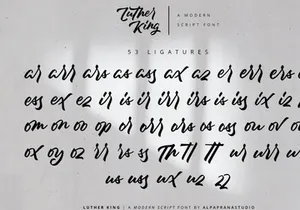 Luther King
A MODERN
SCRIPT FONT
53 LIGATURES
ar arr ars as ass ax az er err ers
ess ex ez ir is ir irr irs is iss ix iz
om on oo op or orr ors os oss ou ov
ox oy oz rr rs ss Th TT TT ur urr
us uss ux uz zz
LUTHER KING | A MODERN SCRIPT FONT BY ALPAPRANASTUDIO